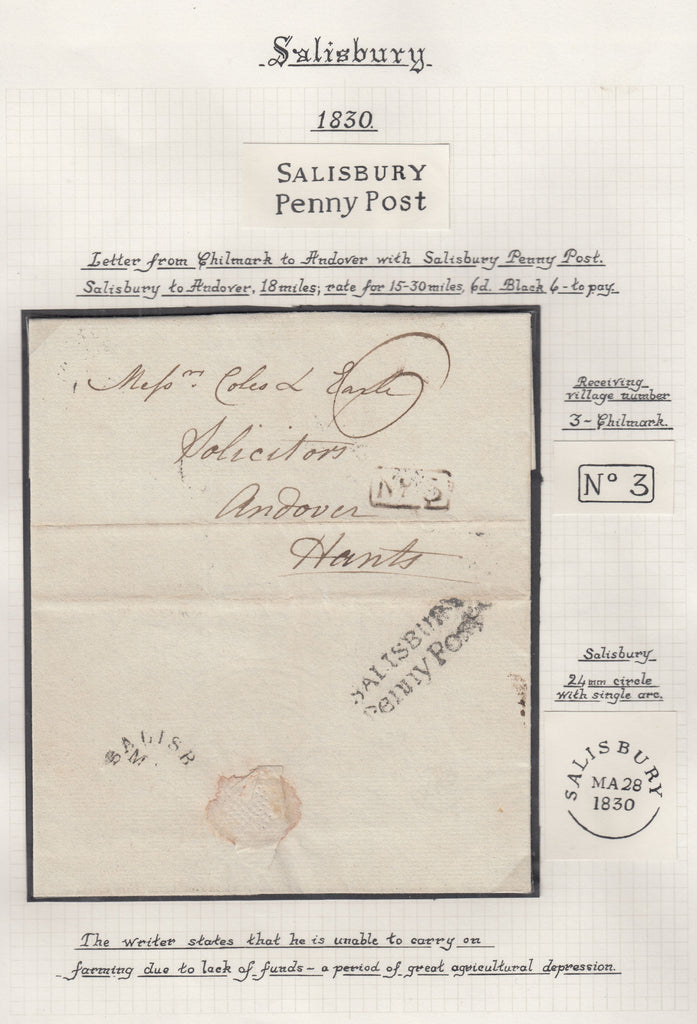 Salisbury
1830.
SALISBURY
Penny Post
Letter from Chilmark to Andover with Salisbury Penny Post.
Salisbury to Andover, 18 miles; rate for 15-30 miles, 6d. Black 6 - to pay.
Messrs. Coles & Earle
6
Solicitors
Andover
Hants
No 3
SALISBURY
Penny Post
SALISB
M
Receiving
village number
3 - Chilmark.
No 3
Salisbury
24mm circle
with single arc.
SALISBURY
MA 28
1830
The writer states that he is unable to carry on
farming due to lack of funds - a period of great agricultural depression.